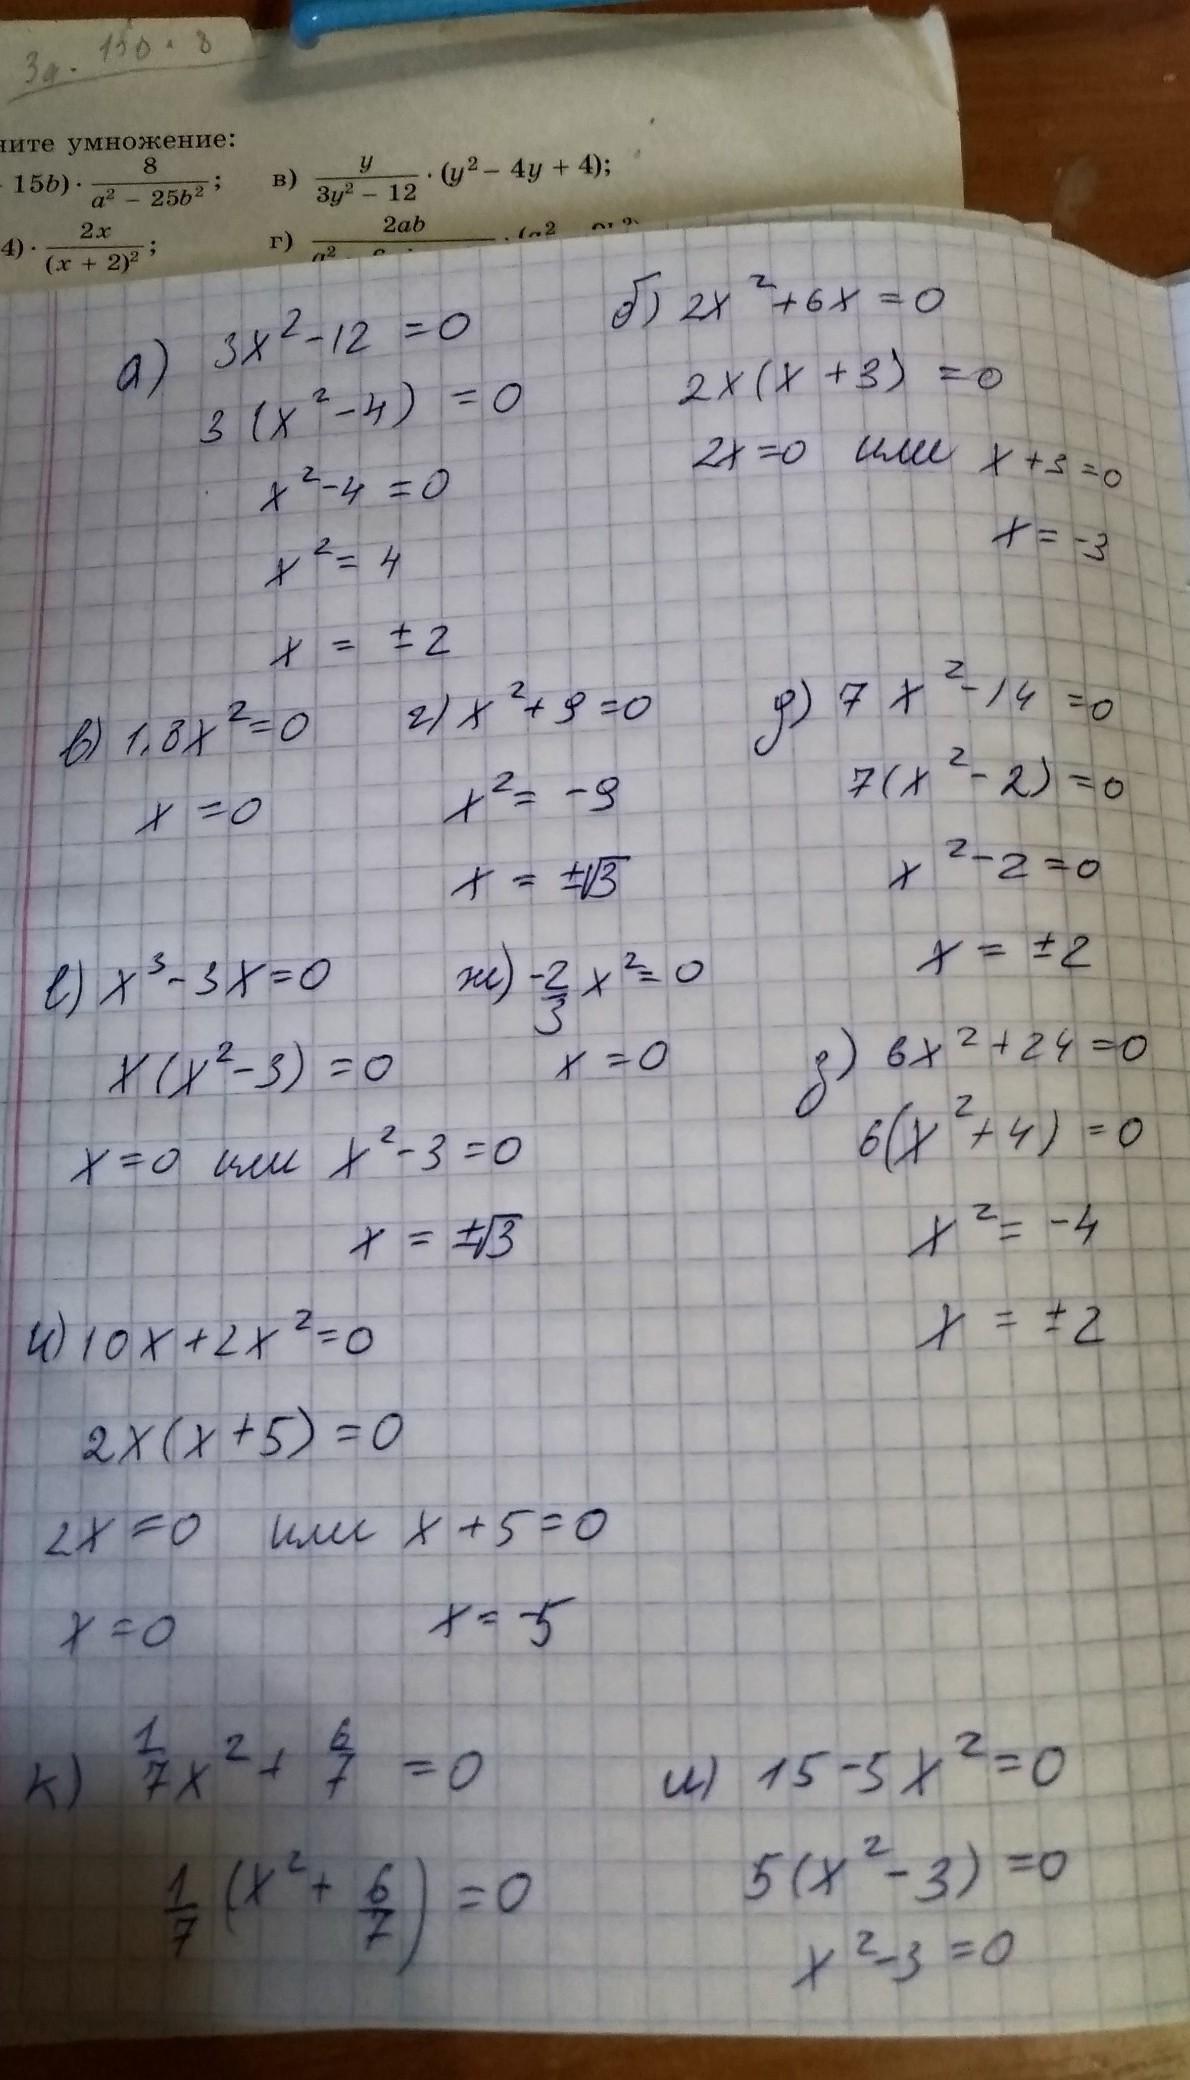 3д. 150. 8
ните умножение:
15b) · 8/(a² − 25b²); в) y/(3y² − 12) · (y² − 4y + 4);
4) · 2x/(x + 2)²; г) 2ab
а) 3x² - 12 = 0
3(x² - 4) = 0
x² - 4 = 0
x² = 4
x = ±2
б) 2x² + 6x = 0
2x(x + 3) = 0
2x = 0 или x + 3 = 0
x = -3
в) 1,8x² = 0
x = 0
г) x² + 9 = 0
x² = -9
x = ±√3
д) 7x² - 14 = 0
7(x² - 2) = 0
x² - 2 = 0
x = ±2
е) x³ - 3x = 0
x(x² - 3) = 0
x = 0 или x² - 3 = 0
x = ±√3
ж) -2/3 x² = 0
x = 0
з) 6x² + 24 = 0
6(x² + 4) = 0
x² = -4
x = ±2
и) 10x + 2x² = 0
2x(x + 5) = 0
2x = 0 или x + 5 = 0
x = 0 x = -5
к) 1/7 x² + 6/7 = 0
1/7 (x² + 6/7) = 0
л) 15 - 5x² = 0
5(x² - 3) = 0
x² - 3 = 0